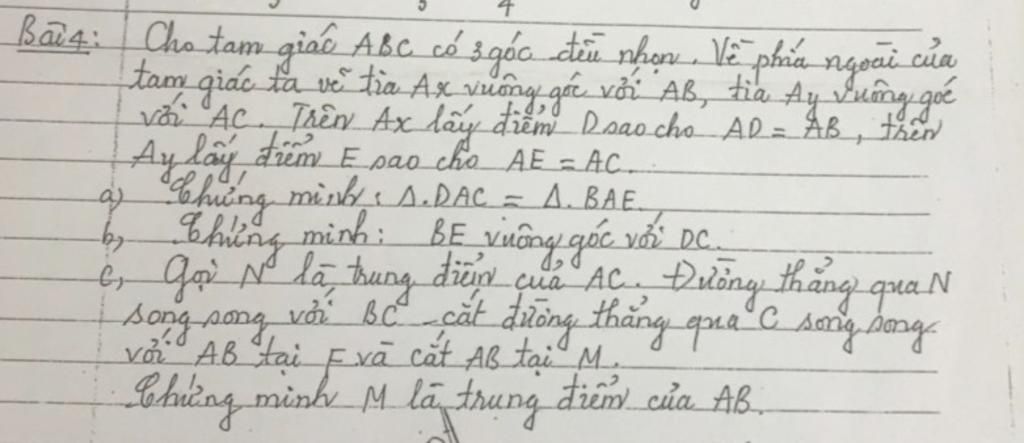 Bài 4: Cho tam giác ABC có 3 góc đều nhọn. Vẽ phía ngoài của
tam giác ta vẽ tia Ax vuông góc với AB, tia Ay vuông góc
với AC. Trên Ax lấy điểm D sao cho AD = AB, trên
Ay lấy điểm E sao cho AE = AC.
a) Chứng minh: Δ.DAC = Δ.BAE.
b, Chứng minh: BE vuông góc với DC.
c, Gọi N là trung điểm của AC. Đường thẳng qua N
song song với BC cắt đường thẳng qua C song song
với AB tại F và cắt AB tại M.
Chứng minh M là trung điểm của AB.